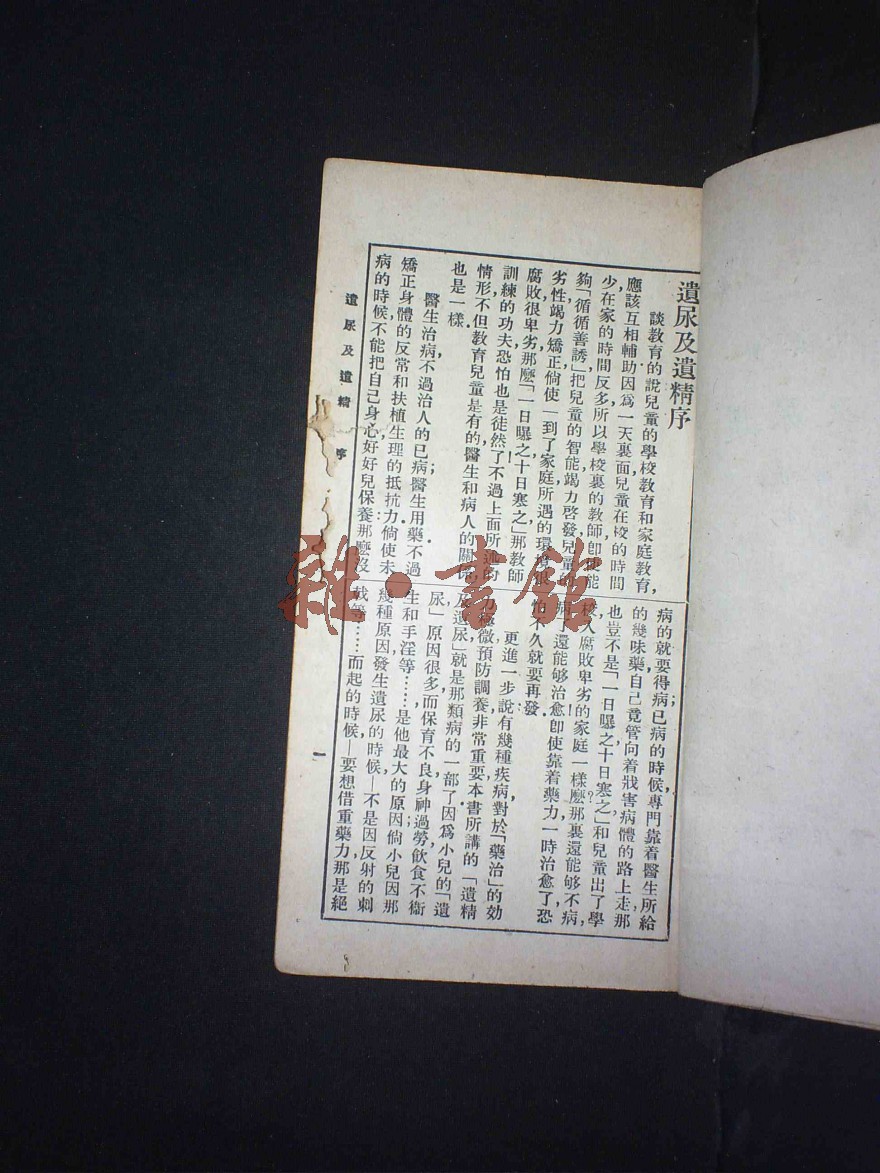 遺尿及遺精序
談教育的說兒童的學校教育和家庭教育，
應該互相輔助因爲一天裏面兒童在校的時間
少在家的時間反多所以學校裏的教師卽使能
夠「循循善誘」把兒童的智能竭力啓發兒童的
劣性竭力矯正倘使一到了家庭所遇的環境很
腐敗很卑劣那麽「一日曝之十日寒之」那教師
訓練的功夫恐怕也是徒然了不過上面所述的
情形不但教育兒童是有的醫生和病人的關係
也是一樣．
醫生治病不過治人的已病；醫生用藥不過
矯正身體的反常和扶植生理的抵抗力．倘使未
病的時候不能把自己身心好好兒保養那麽沒
病的就要得病；已病的時候，專門靠着醫生所給
的幾味藥自己竟管向着戕害病體的路上走那
也豈不是「一日曝之十日寒之」和兒童出了學
校入腐敗卑劣的家庭一樣麽？那裏還能够不病，
病了還能够治愈！卽使靠着藥力一時治愈了恐
怕不久就要再發．
更進一步說有幾種疾病對於「藥治」的効
力極微預防調養非常重要．本書所講的「遺精
及遺尿」就是那類病的一部了因爲小兒的「遺
尿」原因很多而保育不良身神過勞飲食不衞
生和手淫等……是他最大的原因倘小兒因那
幾種原因發生遺尿的時候—不是因反射的刺
戟等……而起的時候—要想借重藥力那是絕
遺尿及遺精　序
一
雜·書館